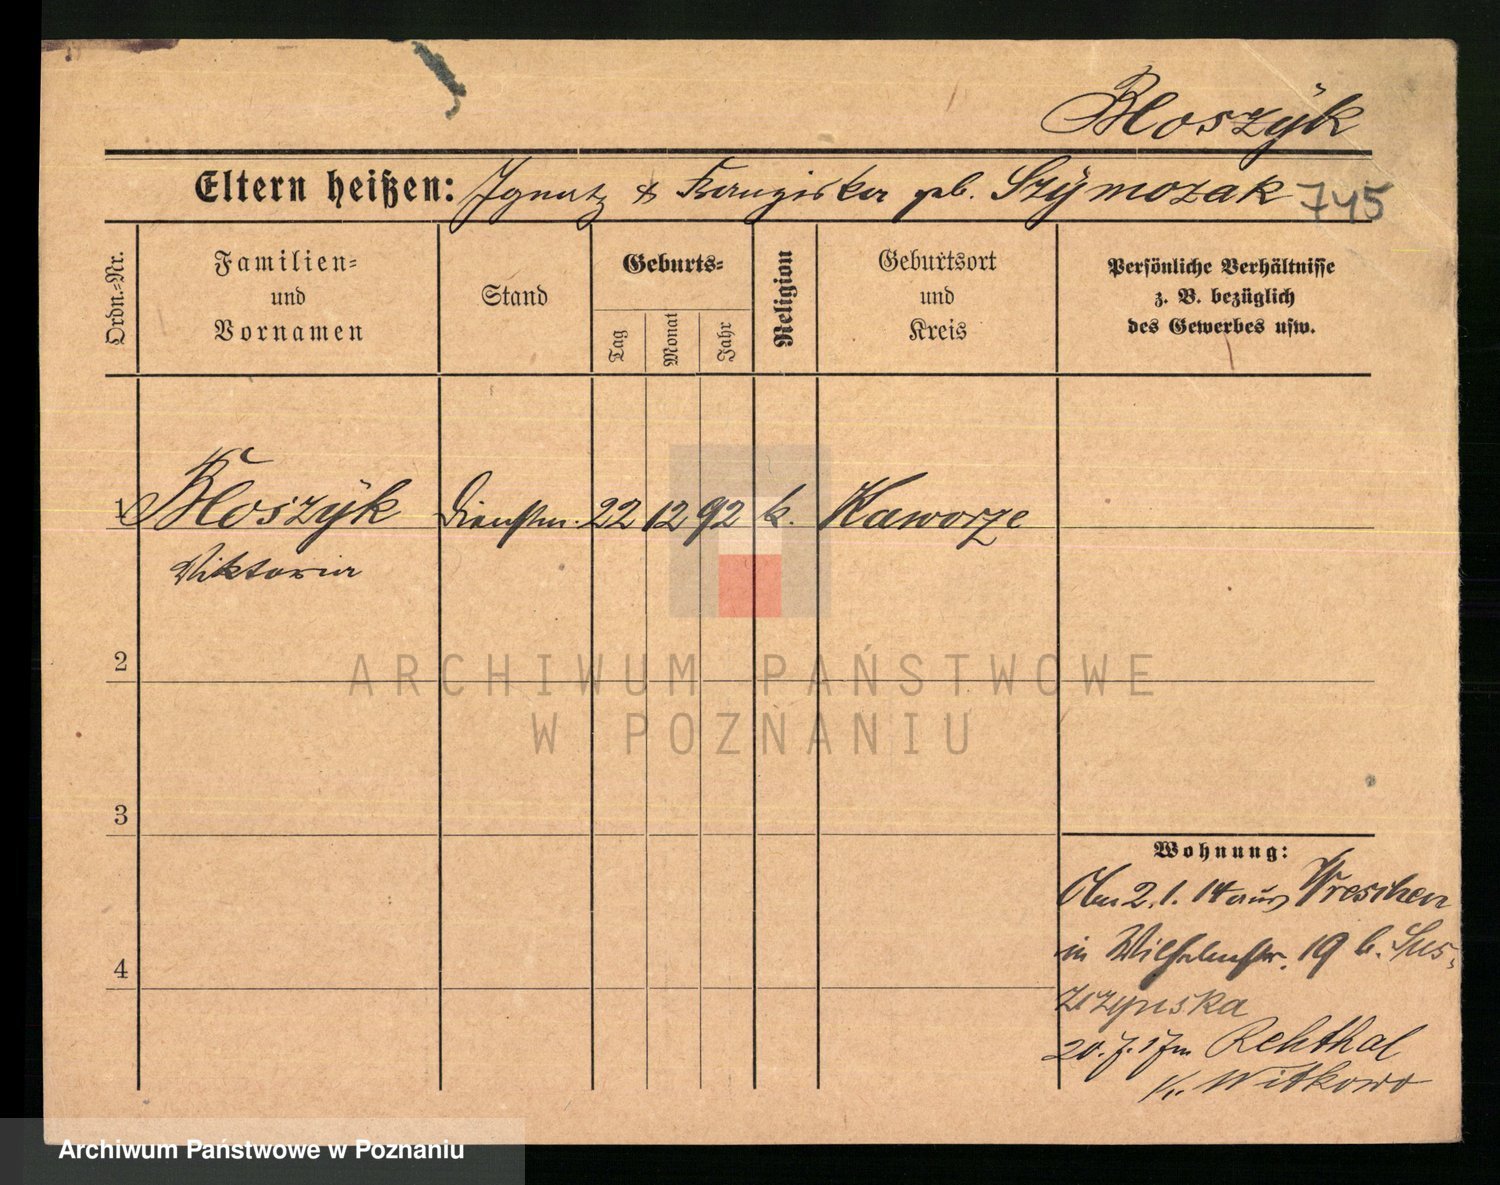 Bloszyk
Eltern heißen: Ignatz & Franziska geb. Szymozak 745
Ordn.-Nr.
Familien-
und
Vornamen
Stand
Geburts-
Tag
Monat
Jahr
Religion
Geburtsort
und
Kreis
Persönliche Verhältnisse
z. B. bezüglich
des Gewerbes usw.
1 Bloszyk Dienstm. 22 12 92 k. Kaworze
Viktoria
2
3
4
Wohnung:
Am 2.1.14 aus Wreschen
in Wilhelmstr. 19 b. Sus-
zczynska
20.7.17 n Rehthal
Kr. Witkowo
ARCHIWUM PAŃSTWOWE
W POZNANIU
Archiwum Państwowe w Poznaniu